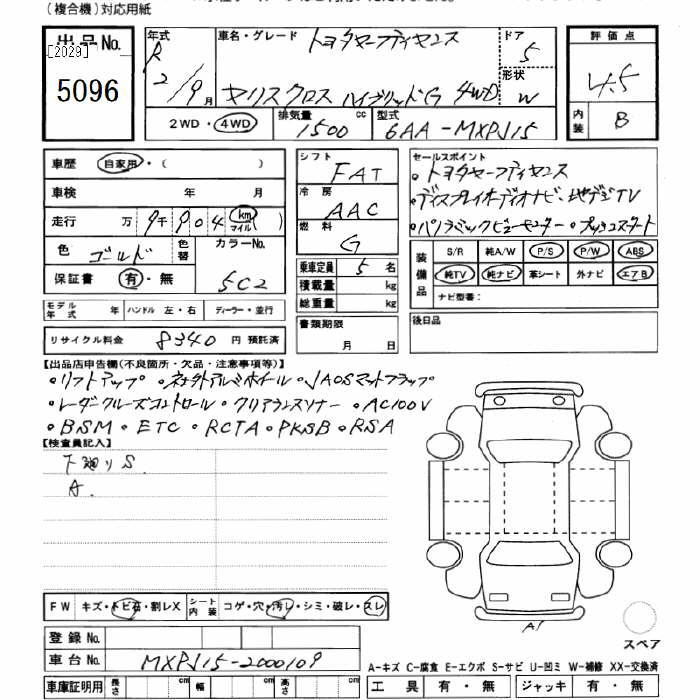 （複合機）対応用紙
出品No.
[2029]
5096
年式
R 2/9月
車名・グレード トヨタセーフティセンス
ヤリスクロス ハイブリッドG 4WD
ドア
5
形状
W
評価点
4.5
内装 B
2WD・4WD
排気量 1500 cc
型式 6AA-MXPJ15
車歴 自家用・（ ）
車検 年 月
走行 万 9千 904 km マイル（ ）
色 ゴールド 色替 カラーNo.
5C2
保証書 有・無
モデル年式 ハンドル 左・右 ディーラー・並行
リサイクル料金 8340 円 預託済
シフト FAT
冷房 AAC
燃料 G
乗車定員 5 名
積載量 kg
総重量 kg
書類期限
月 日
セールスポイント
・トヨタセーフティセンス
・ディスプレイオーディオナビ・地デジTV
・パノラミックビューモニター・プッシュスタート
装備品 S/R 純A/W P/S P/W ABS
純TV 純ナビ 革シート 外ナビ エアB
ナビ型番：
後日品
【出品店申告欄(不良箇所・欠品・注意事項等)】
・リフトアップ ・社外アルミホイール ・JAOSマットフラップ
・レーダークルーズコントロール ・クリアランスソナー ・AC100V
・BSM ・ETC ・RCTA ・PKSB ・RSA
【検査員記入】
下廻りS
A
FW キズ・トビ石・割レX シート内装 コゲ・穴・汚レ・シミ・破レ・スレ
登録No.
車台No. MXPJ15-2000109
車庫証明用 長さ cm 幅 cm 高さ cm
A1
スペア
A-キズ C-腐食 E-エクボ S-サビ U-凹ミ W-補修 XX-交換済
工具 有・無 ジャッキ 有・無